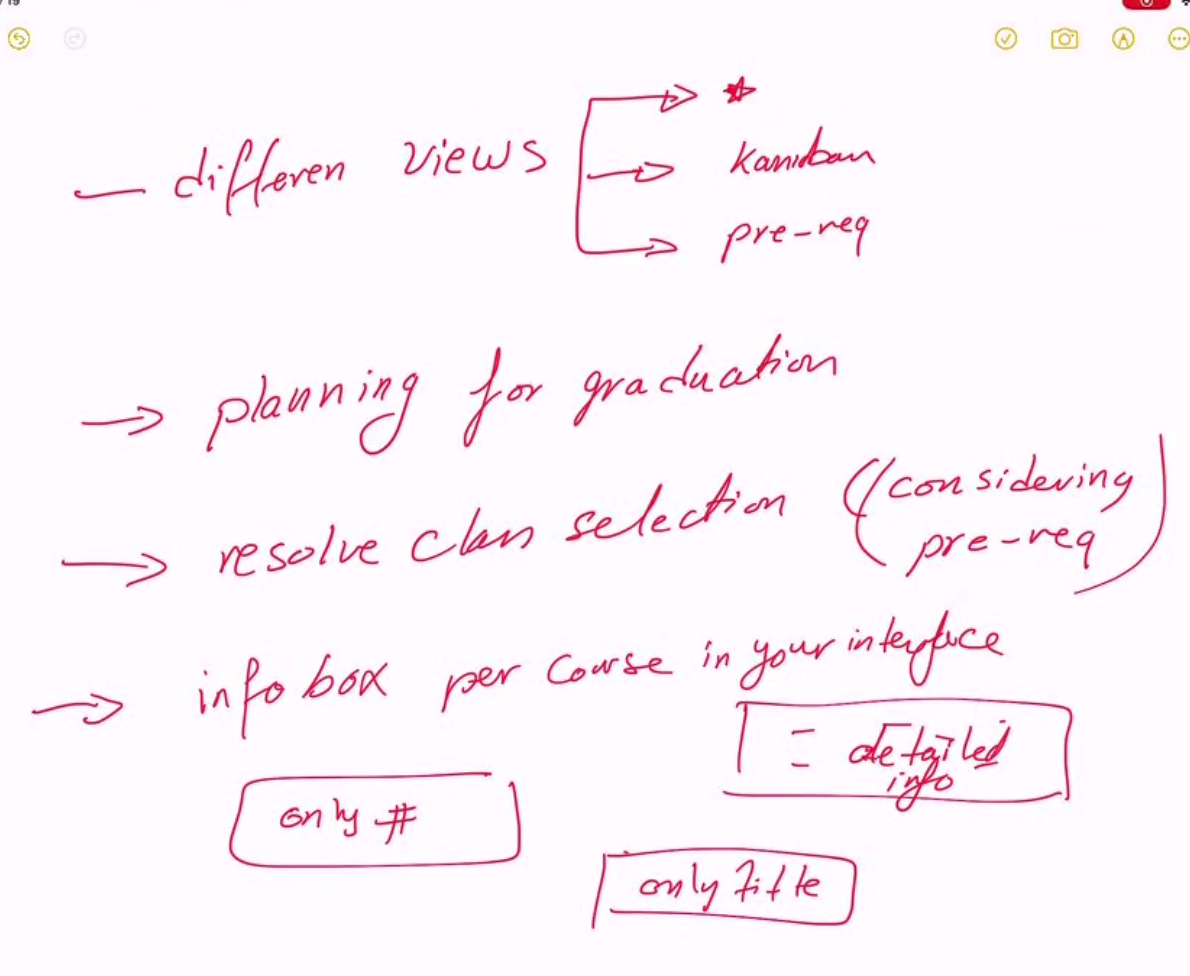 19
— differen views
★
kanban
pre-req
→ planning for graduation
→ resolve class selection (considering
pre-req)
→ info box per course in your interface
= detailed
info
only #
only title